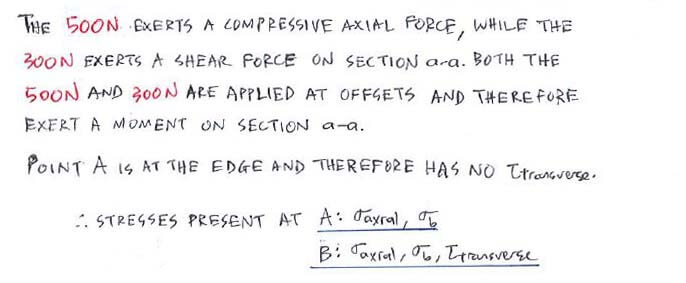 THE 500N EXERTS A COMPRESSIVE AXIAL FORCE, WHILE THE
300N EXERTS A SHEAR FORCE ON SECTION a-a. BOTH THE
500N AND 300N ARE APPLIED AT OFFSETS AND THEREFORE
EXERT A MOMENT ON SECTION a-a.
POINT A IS AT THE EDGE AND THEREFORE HAS NO τtransverse.
∴ STRESSES PRESENT AT A: σaxial, σb
B: σaxial, σb, τtransverse